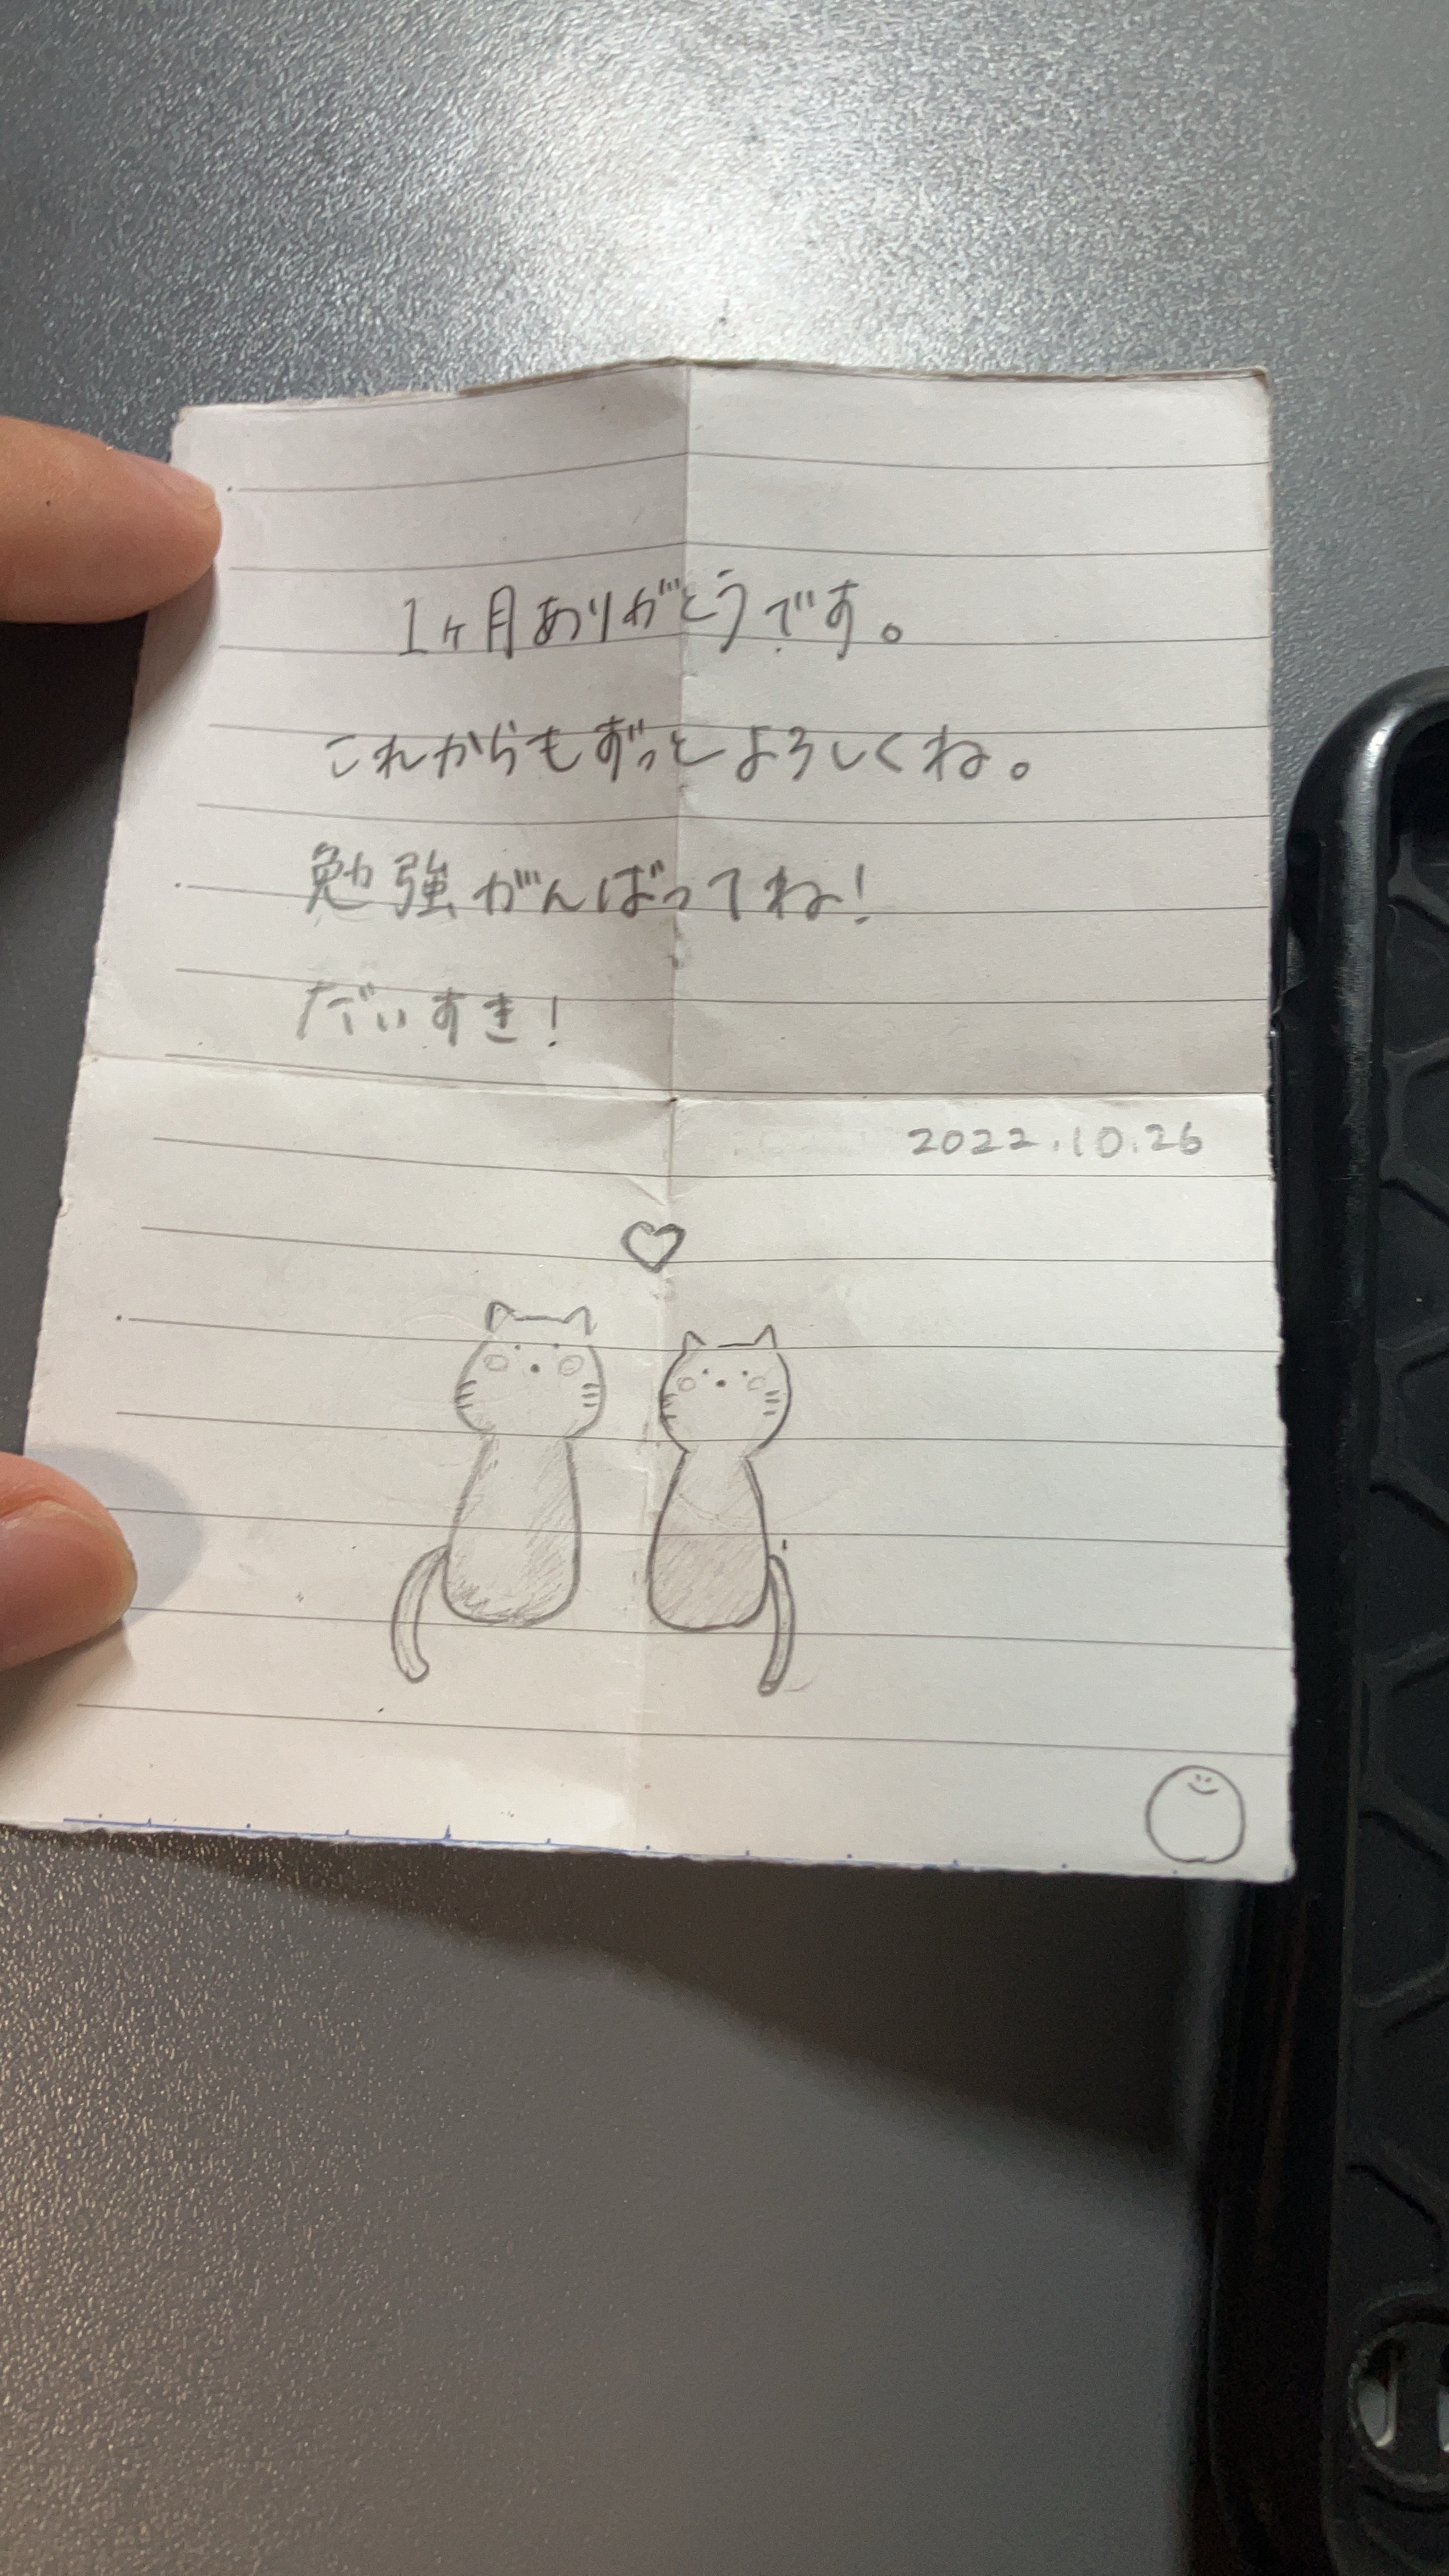 1ヶ月ありがとうです。
これからもずっとよろしくね。
勉強がんばってね!
だいすき!
2022.10.26